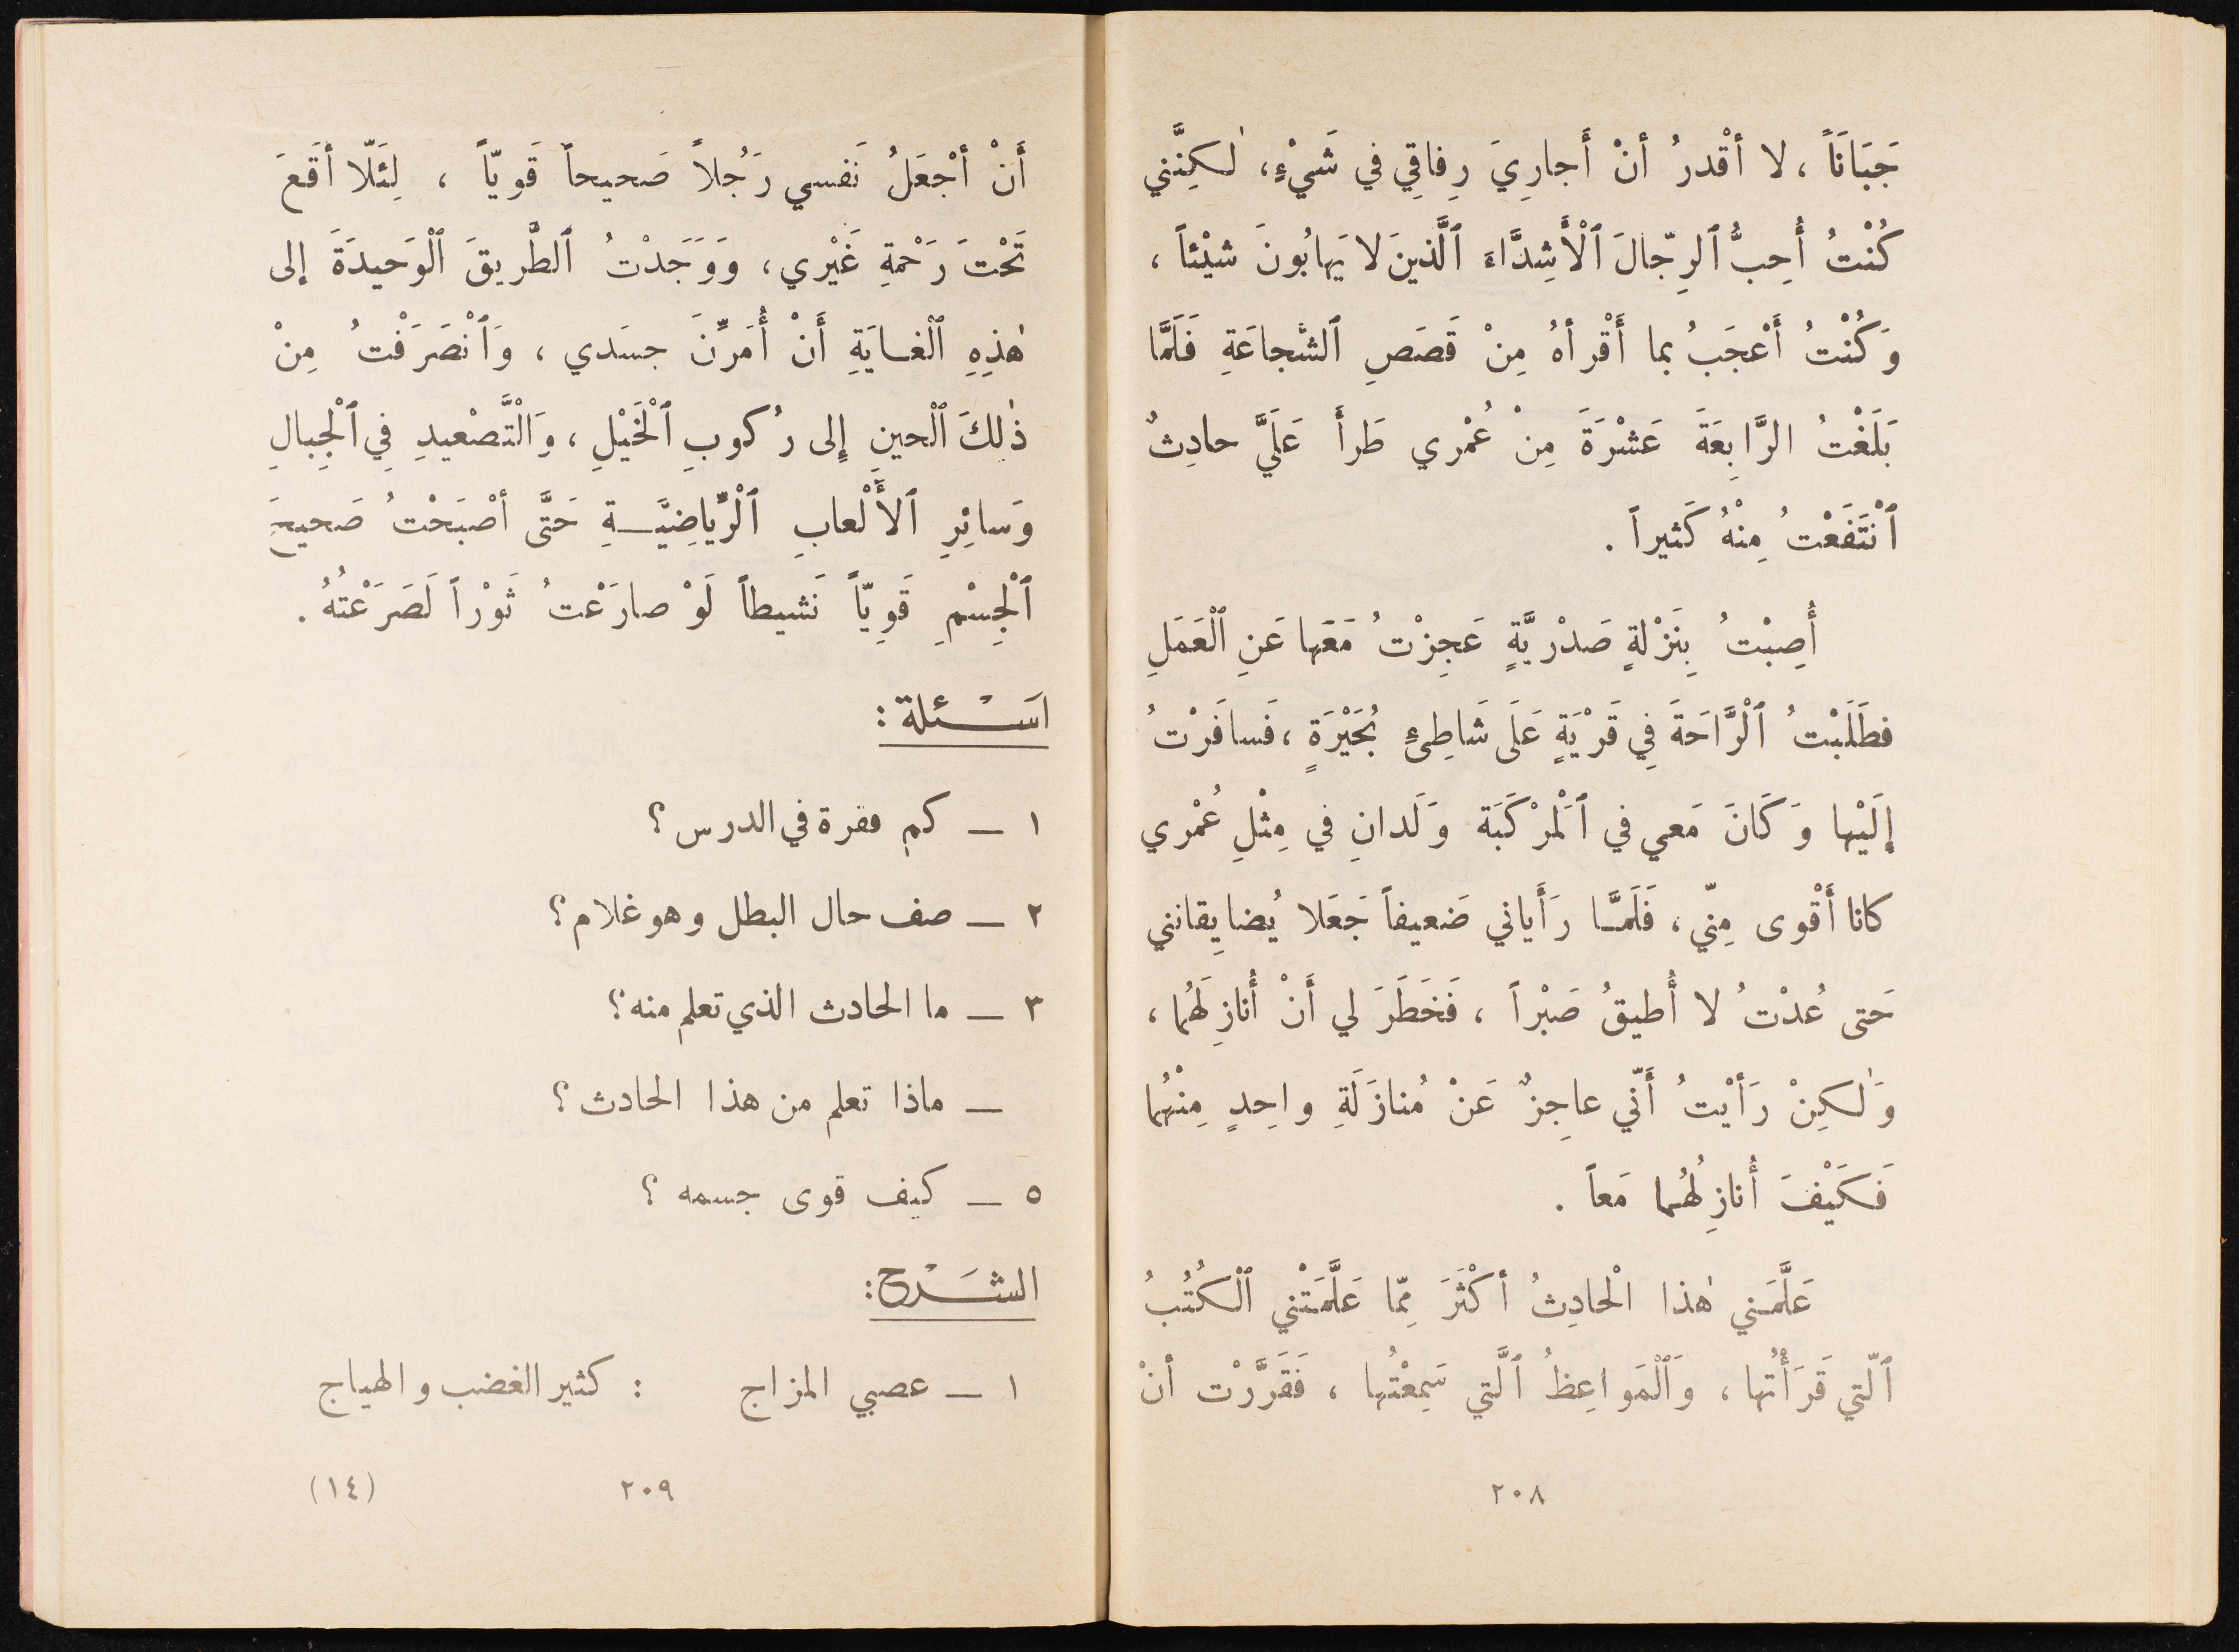 جَبَانَاً ، لا أقْدرُ أنْ أَجارِيَ رِفاقِي في شَيْءٍ، لٰكِنَّني
كُنْتُ أُحِبُّ ٱلرِّجّالَ ٱلْأَشِدَّاءَ ٱلَّذينَ لا يَهابُونَ شيْئاً ،
وَكُنْتُ أَعْجَبُ بما أَقْرأهُ مِنْ قَصَصِ ٱلشَّجاعَةِ فَلَمَّا
بَلَغْتُ الرَّابِعَةَ عَشْرَةَ مِنْ عُمْري طَرأَ عَلَيَّ حادِثٌ
ٱنْتَفَعْتُ مِنْهُ كَثيراً .
أُصِبْتُ بِنَزْلةٍ صَدْرِيَّةٍ عَجِزْتُ مَعَها عَنِ ٱلْعَمَلِ
فطَلَبْتُ ٱلْرَّاحَةَ فِي قَرْيَةٍ عَلَى شَاطِىءٍ بُحَيْرَةٍ ، فَسافَرْتُ
إلَيْها وَكَانَ مَعي في ٱلْمَرْكَبَة وَلَدانِ في مِثْلِ عُمْري
كانا أَقْوى مِنّي ، فَلَمَّـا رَأَياني ضَعيفاً جَعَلا يُضايِقانني
حَتى عُدْتُ لا أُطيقُ صَبْراً ، فَخَطَرَ لي أَنْ أُنازِلَهُما ،
وَلٰكِنْ رَأيْتُ أَنّي عاجِزٌ عَنْ مُنازَلَةِ واحِدٍ مِنْهُما
فَكَيْفَ أُنازِلُهُما مَعاً .
عَلَّمَني هٰذا الْحادِثُ أكْثَرَ مِمّا عَلَّمَتْني ٱلْكُتُبُ
ٱلّتي قَرَأْتُها ، وَٱلْمَواعِظُ ٱلَّتي سَمِعْتُها ، فَقَرَّرْت أنْ
٢٠٨
أَنْ أجْعَلُ نَفسي رَجُلاً صَحيحاً قَويّاً ، لِئَلّا أقَعَ
تَحْتَ رَحْمةِ غَيْري ، وَوَجَدْتُ ٱلطَّريقَ ٱلْوَحيدَةَ إلى
هٰذِهِ ٱلْغـايَةِ أَنْ أُمَرِّنَ جسَدي ، وَٱنْصَرَفْتُ مِنْ
ذٰلِكَ ٱلْحينِ إِلى رُكوبِ ٱلْخَيْلِ ، وَالْتَّصْعيدِ فِي ٱلْجِبالِ
وَسائِرِ ٱلأَلْعابِ ٱلْرِّياضِيَّـةِ حَتَّى أصْبَحْتُ صَحيحَ
ٱلْجِسْمِ قَوِيّاً نَشيطاً لَوْ صارَعْتُ ثَوْراً لَصَرَعْتُهُ .
اَسْـئلة :
١ ــ كم فقرة في الدرس ؟
٢ ــ صف حال البطل وهو غلام ؟
٣ ــ ما الحادث الذي تعلم منه ؟
ــ ماذا تعلم من هذا الحادث ؟
٥ ــ كيف قوى جسمه ؟
الشَـرْح :
١ ــ عصبي المزاج : كثير الغضب و الهياج
٢٠٩ (١٤)